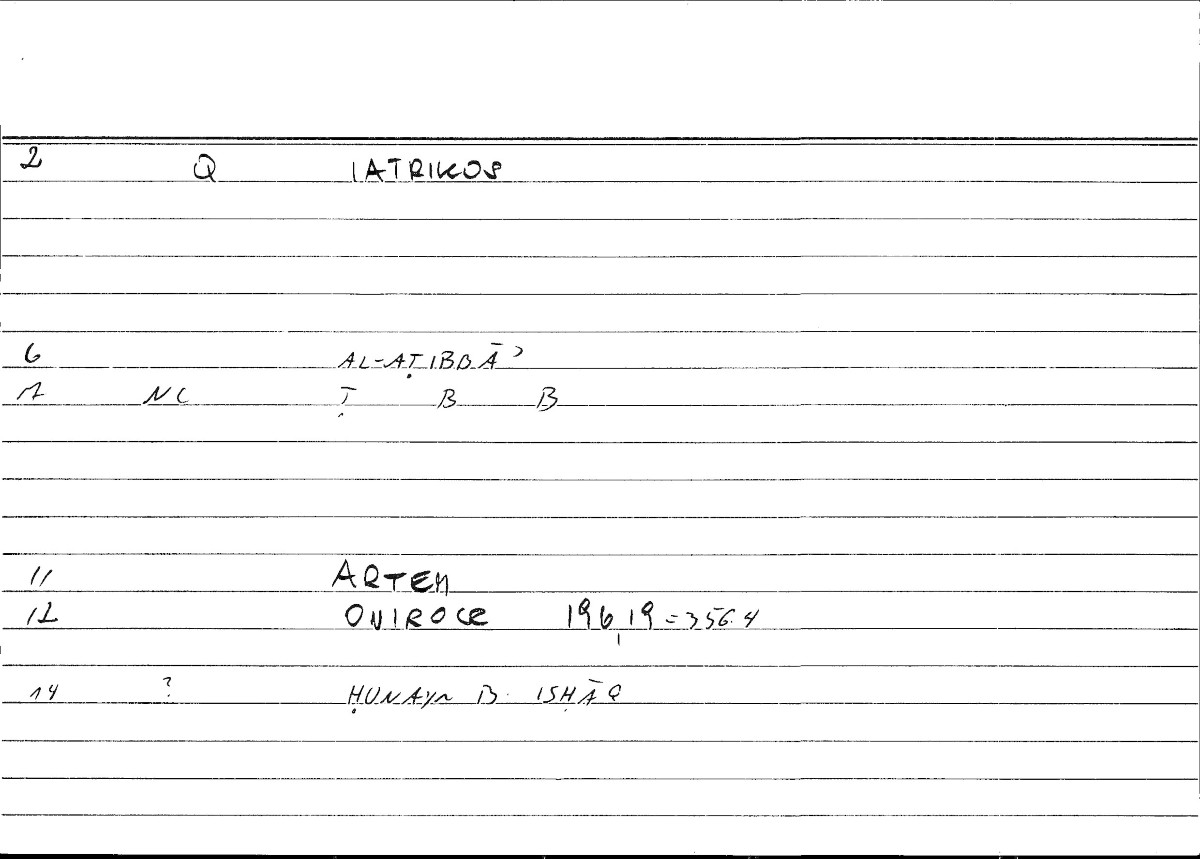 2 Q IATRIKOS
6 AL-AṬIBBĀʾ
7 NC Ṭ B B
11 ARTEM
12 ONIROCR 196,19 = 356.4
14 ? ḤUNAYN B. ISḤĀQ